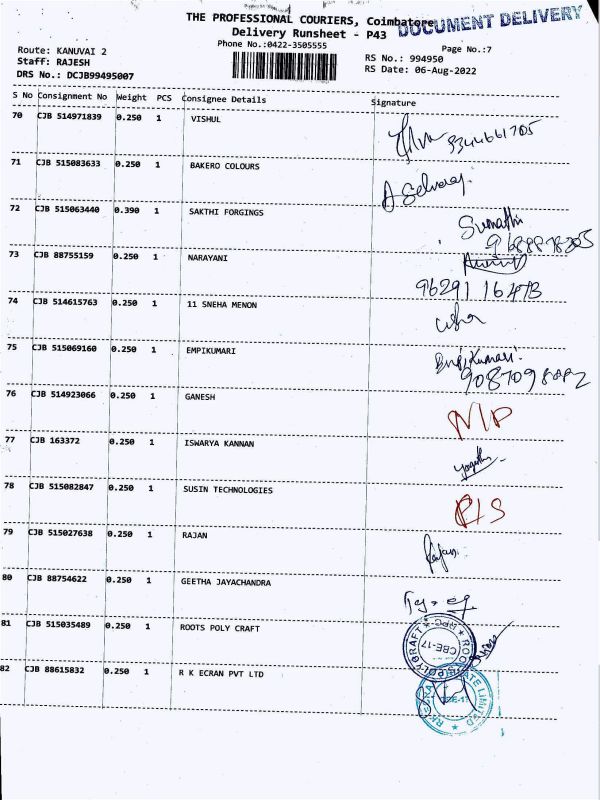 THE PROFESSIONAL COURIERS, Coimbatore
DOCUMENT DELIVERY
Delivery Runsheet - P43
Phone No.:0422-3505555
Page No.:7
Route: KANUVAI 2
Staff: RAJESH
DRS No.: DCJB99495007
RS No.: 994950
RS Date: 06-Aug-2022
S No Consignment No Weight PCS Consignee Details Signature
70 CJB 514971839 0.250 1 VISHUL 9344661705
71 CJB 515083633 0.250 1 BAKERO COLOURS A Selvaraj.
72 CJB 515063440 0.390 1 SAKTHI FORGINGS Sumathi
73 CJB 88755159 0.250 1 NARAYANI
74 CJB 514615763 0.250 1 11 SNEHA MENON
75 CJB 515069160 0.250 1 EMPIKUMARI Empikumari.
76 CJB 514923066 0.250 1 GANESH N/P
77 CJB 163372 0.250 1 ISWARYA KANNAN
78 CJB 515082847 0.250 1 SUSIN TECHNOLOGIES
79 CJB 515027638 0.250 1 RAJAN Rajan
80 CJB 88754622 0.250 1 GEETHA JAYACHANDRA
81 CJB 515035489 0.250 1 ROOTS POLY CRAFT
CBE-17
82 CJB 88615832 0.250 1 R K ECRAN PVT LTD